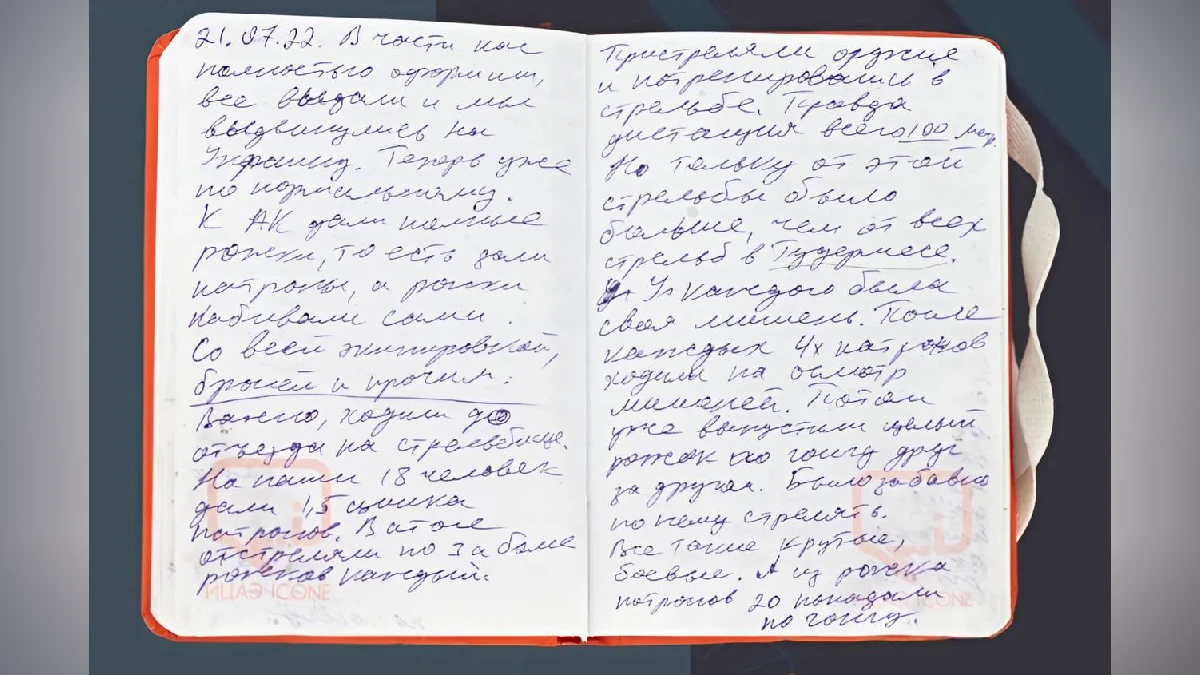 21.07.22. В части нас
полностью оформили,
все выдали и мы
выдвинулись на
Украину. Теперь уже
по нормальному.
К АК дали полные
рожки, то есть дали
патроны, а рожки
набивали сами.
Со всей экипировкой,
броней и прочим.
Важно, ходили до
отъезда на стрельбище.
На наши 18 человек
дали 1,5 цинка
патронов. В итоге
отстреляли по 3 а более
рожков каждый.
Пристреляли оружие
и потренировались в
стрельбе. Правда
дистанция всего 100 метр.
Но тольку от этой
стрельбы было
больше, чем от всех
стрельб в Гудермесе.
У каждого была
своя мишень. После
каждых 4х патронов
ходили на осмотр
мишеней. Потом
уже выпустили целый
рожок по гонгу друг
за другом. Было забавно
по нему стрелять.
Все такие крутые,
боевые. А из рожка
патронов 20 попадали
по гонгу.
ИЦАЭ ICONE
ICONE